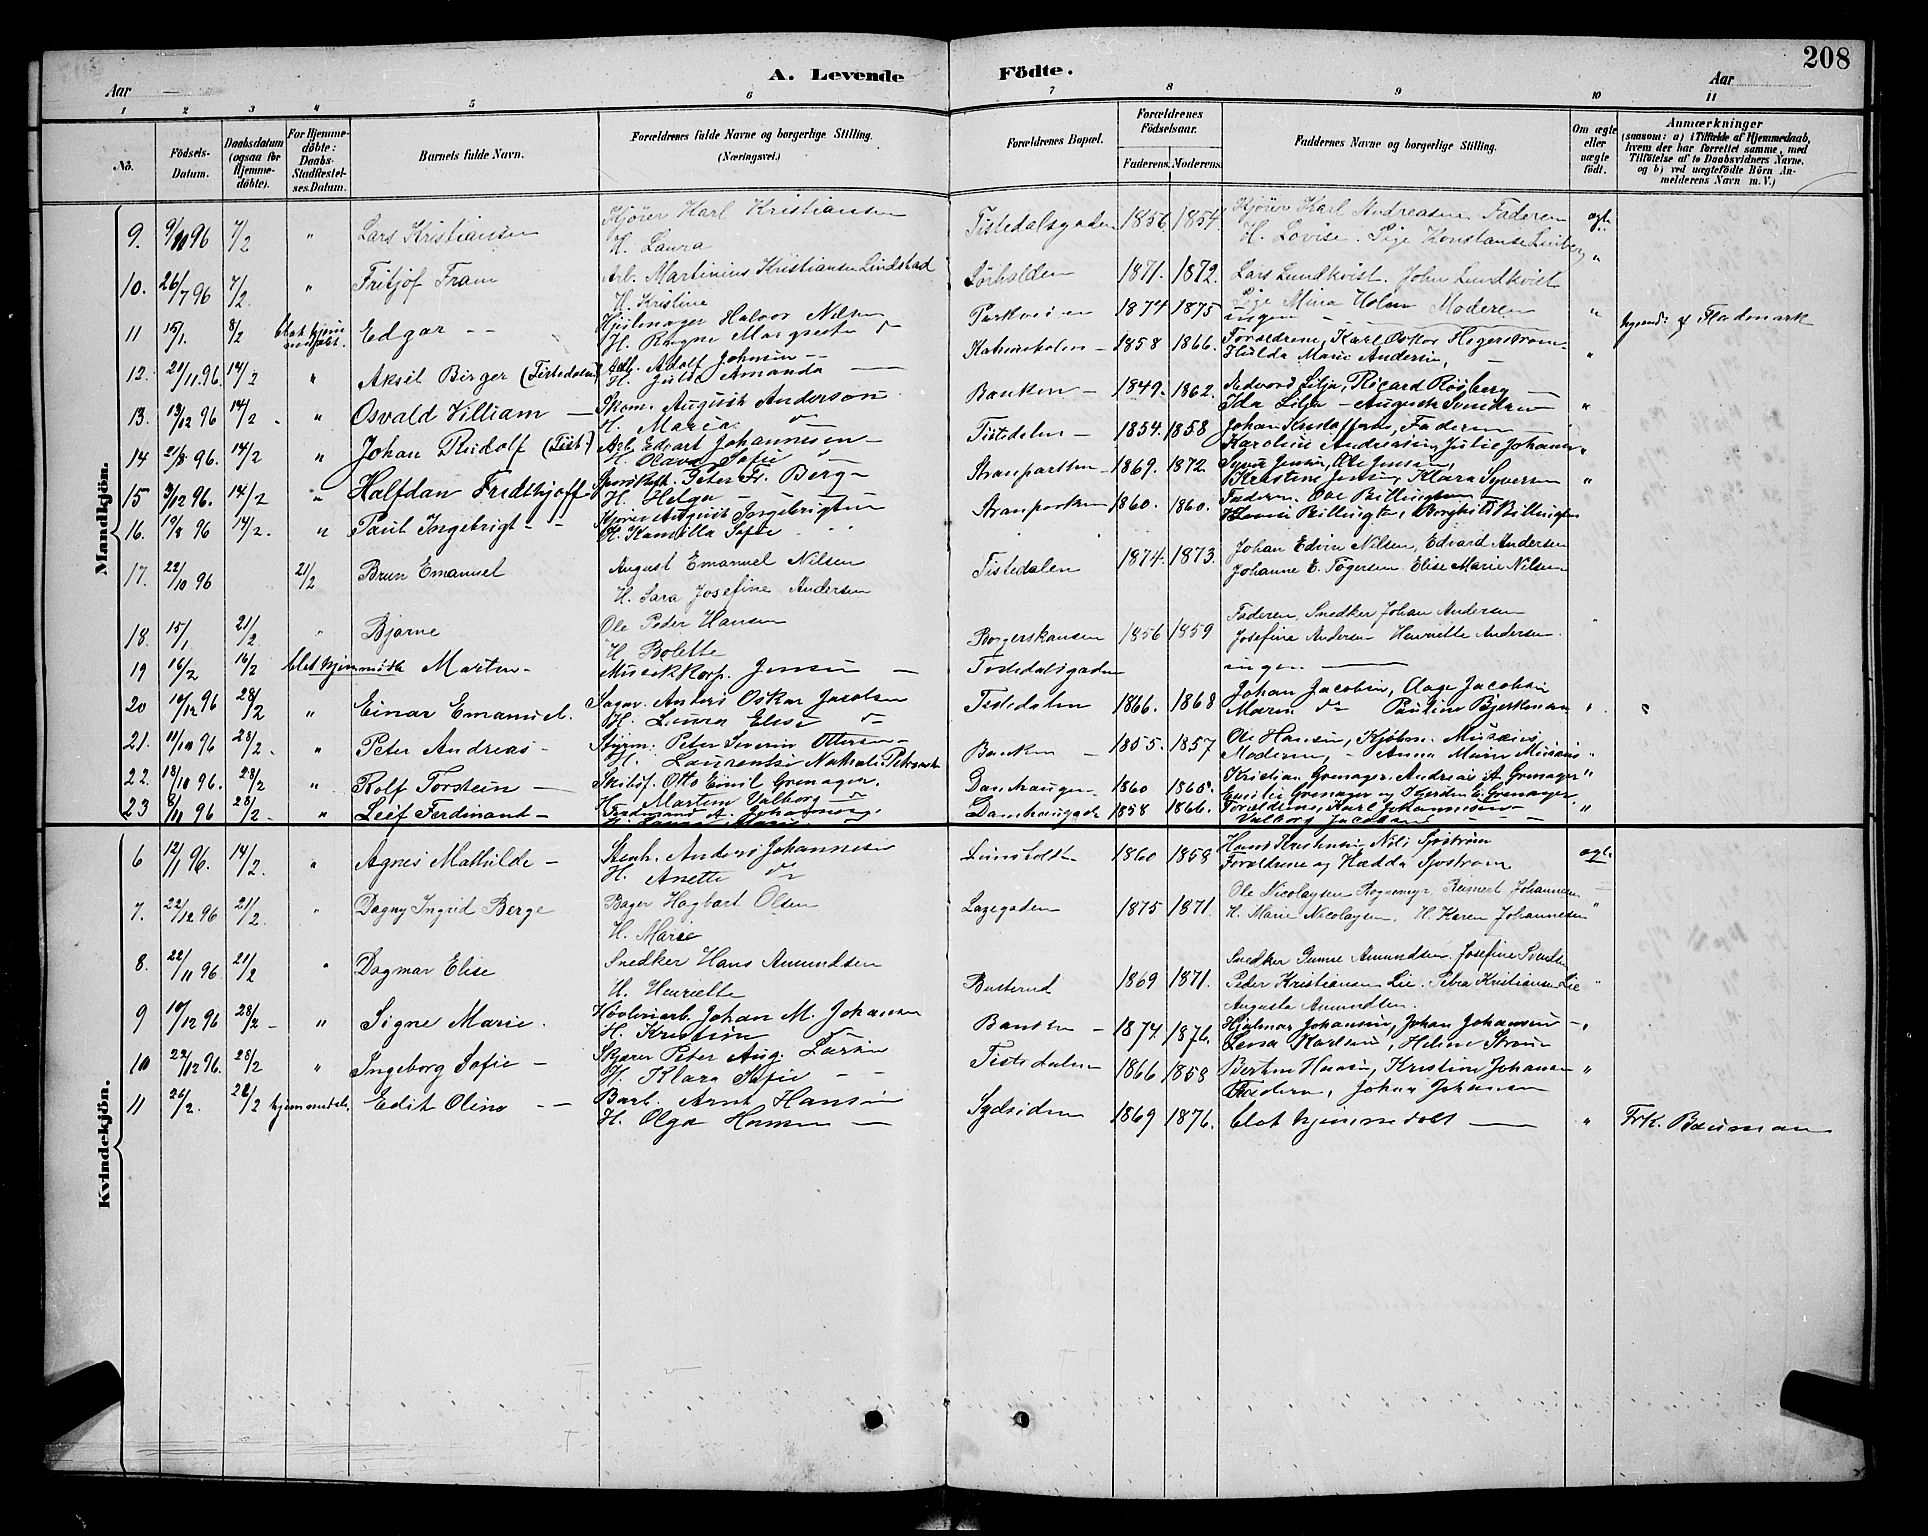 208
A. Levende Födte.
Aar Aar
1 2 3 4 5 6 7 8 9 10 11
No.
Födsels-Datum.
Daabsdatum (ogsaa for Hjemmedöbte).
For Hjemmedöbte: Daabs-Stadfæstelses.Datum.
Barnets fulde Navn.
Forældrenes fulde Navne og borgerlige Stilling. (Næringsvei.)
Forældrenes Bopæl.
Forældrenes Födselsaar.
Faderens. Moderens.
Faddernes Navne og borgerlige Stilling.
Om ægte eller uægte födt.
Anmærkninger
(saasom: a) i Tilfælde af Hjemmedaab, hvem der har forrettet samme, med Tilföielse af to Daabsvidners Navne. og b) ved uægtefödte Börn Anmelderens Navn m. V.)
Mandkjön.
9. 9/10 96 7/2 " Lars Kristiansen Kjører Karl Kristiansen Tistedalsgaden 1856 1854 Kjører Karl Andreasen Faderen ægt.
H. Laura H. Lovise. Pige Konstanse
10. 26/7 96 7/2 " Fritjof Fram Arb. Martinius Kristiansen Lindstad Sørhalden 1871. 1872. Lars Lundkvist. John Lundkvist "
H. Kristine Pige Mina Holm Moderen
11 15/1. 8/2 Edgar Halvor Nilsen 1874 1875 ingen " af Flodmark
H. Ragna Margrete
12. 21/11.96. 14/2 " Aksel Birger (Tistedalen) Arb. Adolf Johnsen 1858 1866. Forældrene, Karl Oskar "
H. Amanda Hulda Marie Andersen,
13. 13/12 96 14/2 " Osvald Villiam Skom. August Anderson Banken 1849. 1862. Edvard Lilja, Ricard Rosberg "
H. Maria do Ida Lilja – Augusta
14 21/8 96. 14/2 " Johan Rudolf (Tist.) Arb. Edvart Johannesen Tistedalen 1854. 1858 Johan Kristoffersen, Faderen "
H. Olava Sofie Karoline Andreasen, Julie
15 3/12 96. 14/2 " Halfdan Fridthjoff Peter Fr. Berg 1869. 1872. Jensen, Ole Jensen, "
H. Helga Kristine Jensen, Klara Syversen
16. 19/8 96 14/2. " Paul Ingebrigt Kjører August Ingebrigtsen 1860. 1860. Faderen. Ole Billingsen
H. Kamilla Sofie
17. 22/10 96 21/2 Brun Emanuel August Emanuel Nilsen Tistedalen 1874. 1873. Johan Edvin Nilsen, Edvard Andersen
H. Sara Josefine Andersen Johanne E. Tögersen. Elise Marie Nilsen
18. 15/1 21/2 " Bjarne Ole Peder Hansen Borgerskansen 1856 1859 Faderen, Snedker Johan Andersen "
H. Bolette Josefine Andersen Henriette Andersen.
19 16/2 16/2 Martin Musikkorp. Jensen Tistedalsgaden ingen
20 10/12 96 28/2 " Einar Emanuel. Anders Oskar Jacobsen Tistedalen 1866. 1868 Johan Jacobsen, Aage Jacobsen "
H. Laura Elise do Maren do Pauline Bjerkman
21. 11/10 96 28/2 " Peter Andreas Styrm. Peter Severin Ottersen Banken 1855. 1857 Ole Hansen, Kjøbm. "
H. Laurentse Moderen, Anna Marie
22. 18/10 96. 28/2 " Rolf Torstein Otto Emil Grenager. Damhaugen 1860 1865 Kristian Grenager, Andreas A. Grenager "
H. Martine Valborg do
23 8/11 96 28/2 " Leif Ferdinant Ferdinand A. Johannesen 1858 1866. Forældrene, Karl Johannesen "
Valborg Jacobsen
Kvindekjön.
6 12/1 96. 14/2. " Agnes Mathilde Anders Johannesen 1860 1858 Hans Kristensen, Nils Sjøstrøm ægt.
H. Anette do Forældrene og Hedda Sjøstrøm
7. 22/12 96 21/2. " Dagny Ingrid Berge Bager Hagbart Olsen 1875 1871. Ole Nicolaysen Rognemyr, Reinert Johannesen "
H. Marie H. Marie Nicolaysen, H. Karen Johannesen
8. 22/11 96. 21/2 " Dagmar Elise Snedker Hans Amundsen Busterud 1869 1871. Snedker Gunne Amundsen. Josefine
H. Henriette Peder Kristiansen Lie. Petra Kristiansen Lie
Augusta Amundsen.
9 10/12 96 28/2 " Signe Marie. Høvleriarb. Johan M. Johansen Banken 1874. 1876. Hjalmar Johansen, Johan Johansen
H. Kristine do Lena Karlsen, Helene Strøm
10 22/12 96. 28/2 " Ingeborg Sofie Peter Aug. Larsen Tistedalen 1866 1858 Hansen, Kristine Johansen "
H. Klara Sofie Faderen, Johan Johansen
11 26/2. 26/2 hjemmedøbt Edit Oline Barb. Arnt Hansen Sydsiden 1869 1876. blot hjemmedøbt " Frk. Bauman
H. Olga Hansen